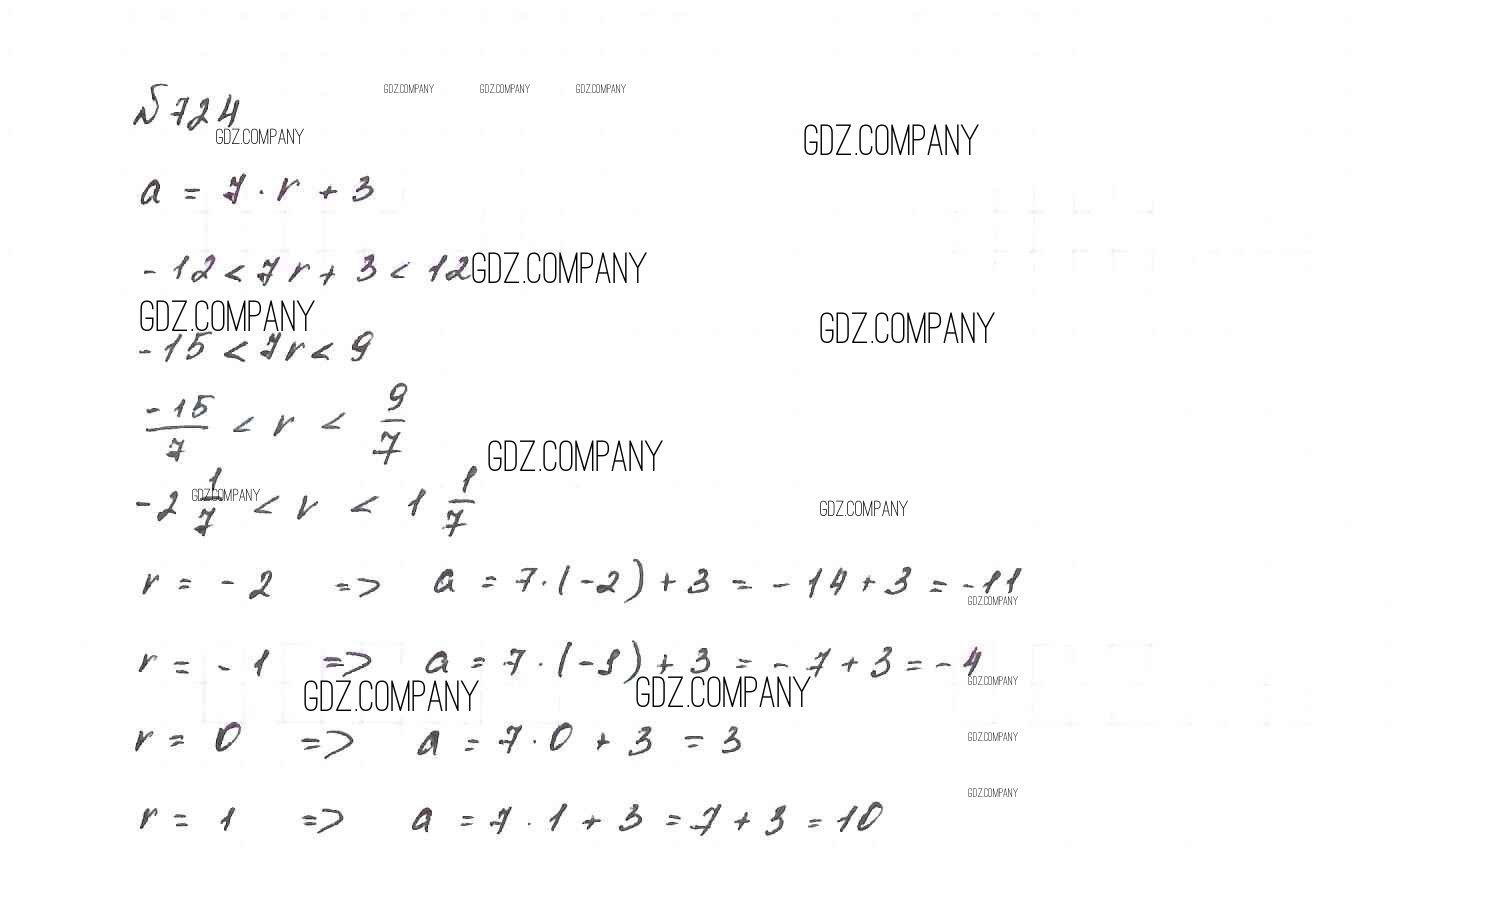 № 724
GDZ.COMPANY GDZ.COMPANY GDZ.COMPANY
GDZ.COMPANY
GDZ.COMPANY
a = 7 · r + 3
-12 < 7r + 3 < 12
GDZ.COMPANY
GDZ.COMPANY
GDZ.COMPANY
-15 < 7r < 9
-15/7 < r < 9/7
GDZ.COMPANY
-2 1/7 < r < 1 1/7
GDZ.COMPANY
GDZ.COMPANY
r = -2 => a = 7·(-2) + 3 = -14 + 3 = -11
GDZ.COMPANY
r = -1 => a = 7·(-1) + 3 = -7 + 3 = -4
GDZ.COMPANY
GDZ.COMPANY
GDZ.COMPANY
r = 0 => a = 7·0 + 3 = 3
GDZ.COMPANY
GDZ.COMPANY
r = 1 => a = 7·1 + 3 = 7 + 3 = 10